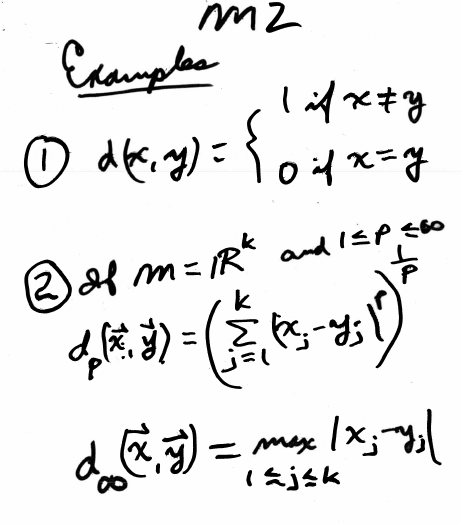 m2
Examples
① d(x, y) = { 1 if x ≠ y
0 if x = y
② If m = ℝ^k and 1 ≤ p ≤ ∞
d_p(x⃗, y⃗) = (∑_{j=1}^{k} |x_j - y_j|^p)^{1/p}
d_∞(x⃗, y⃗) = max_{1≤j≤k} |x_j - y_j|